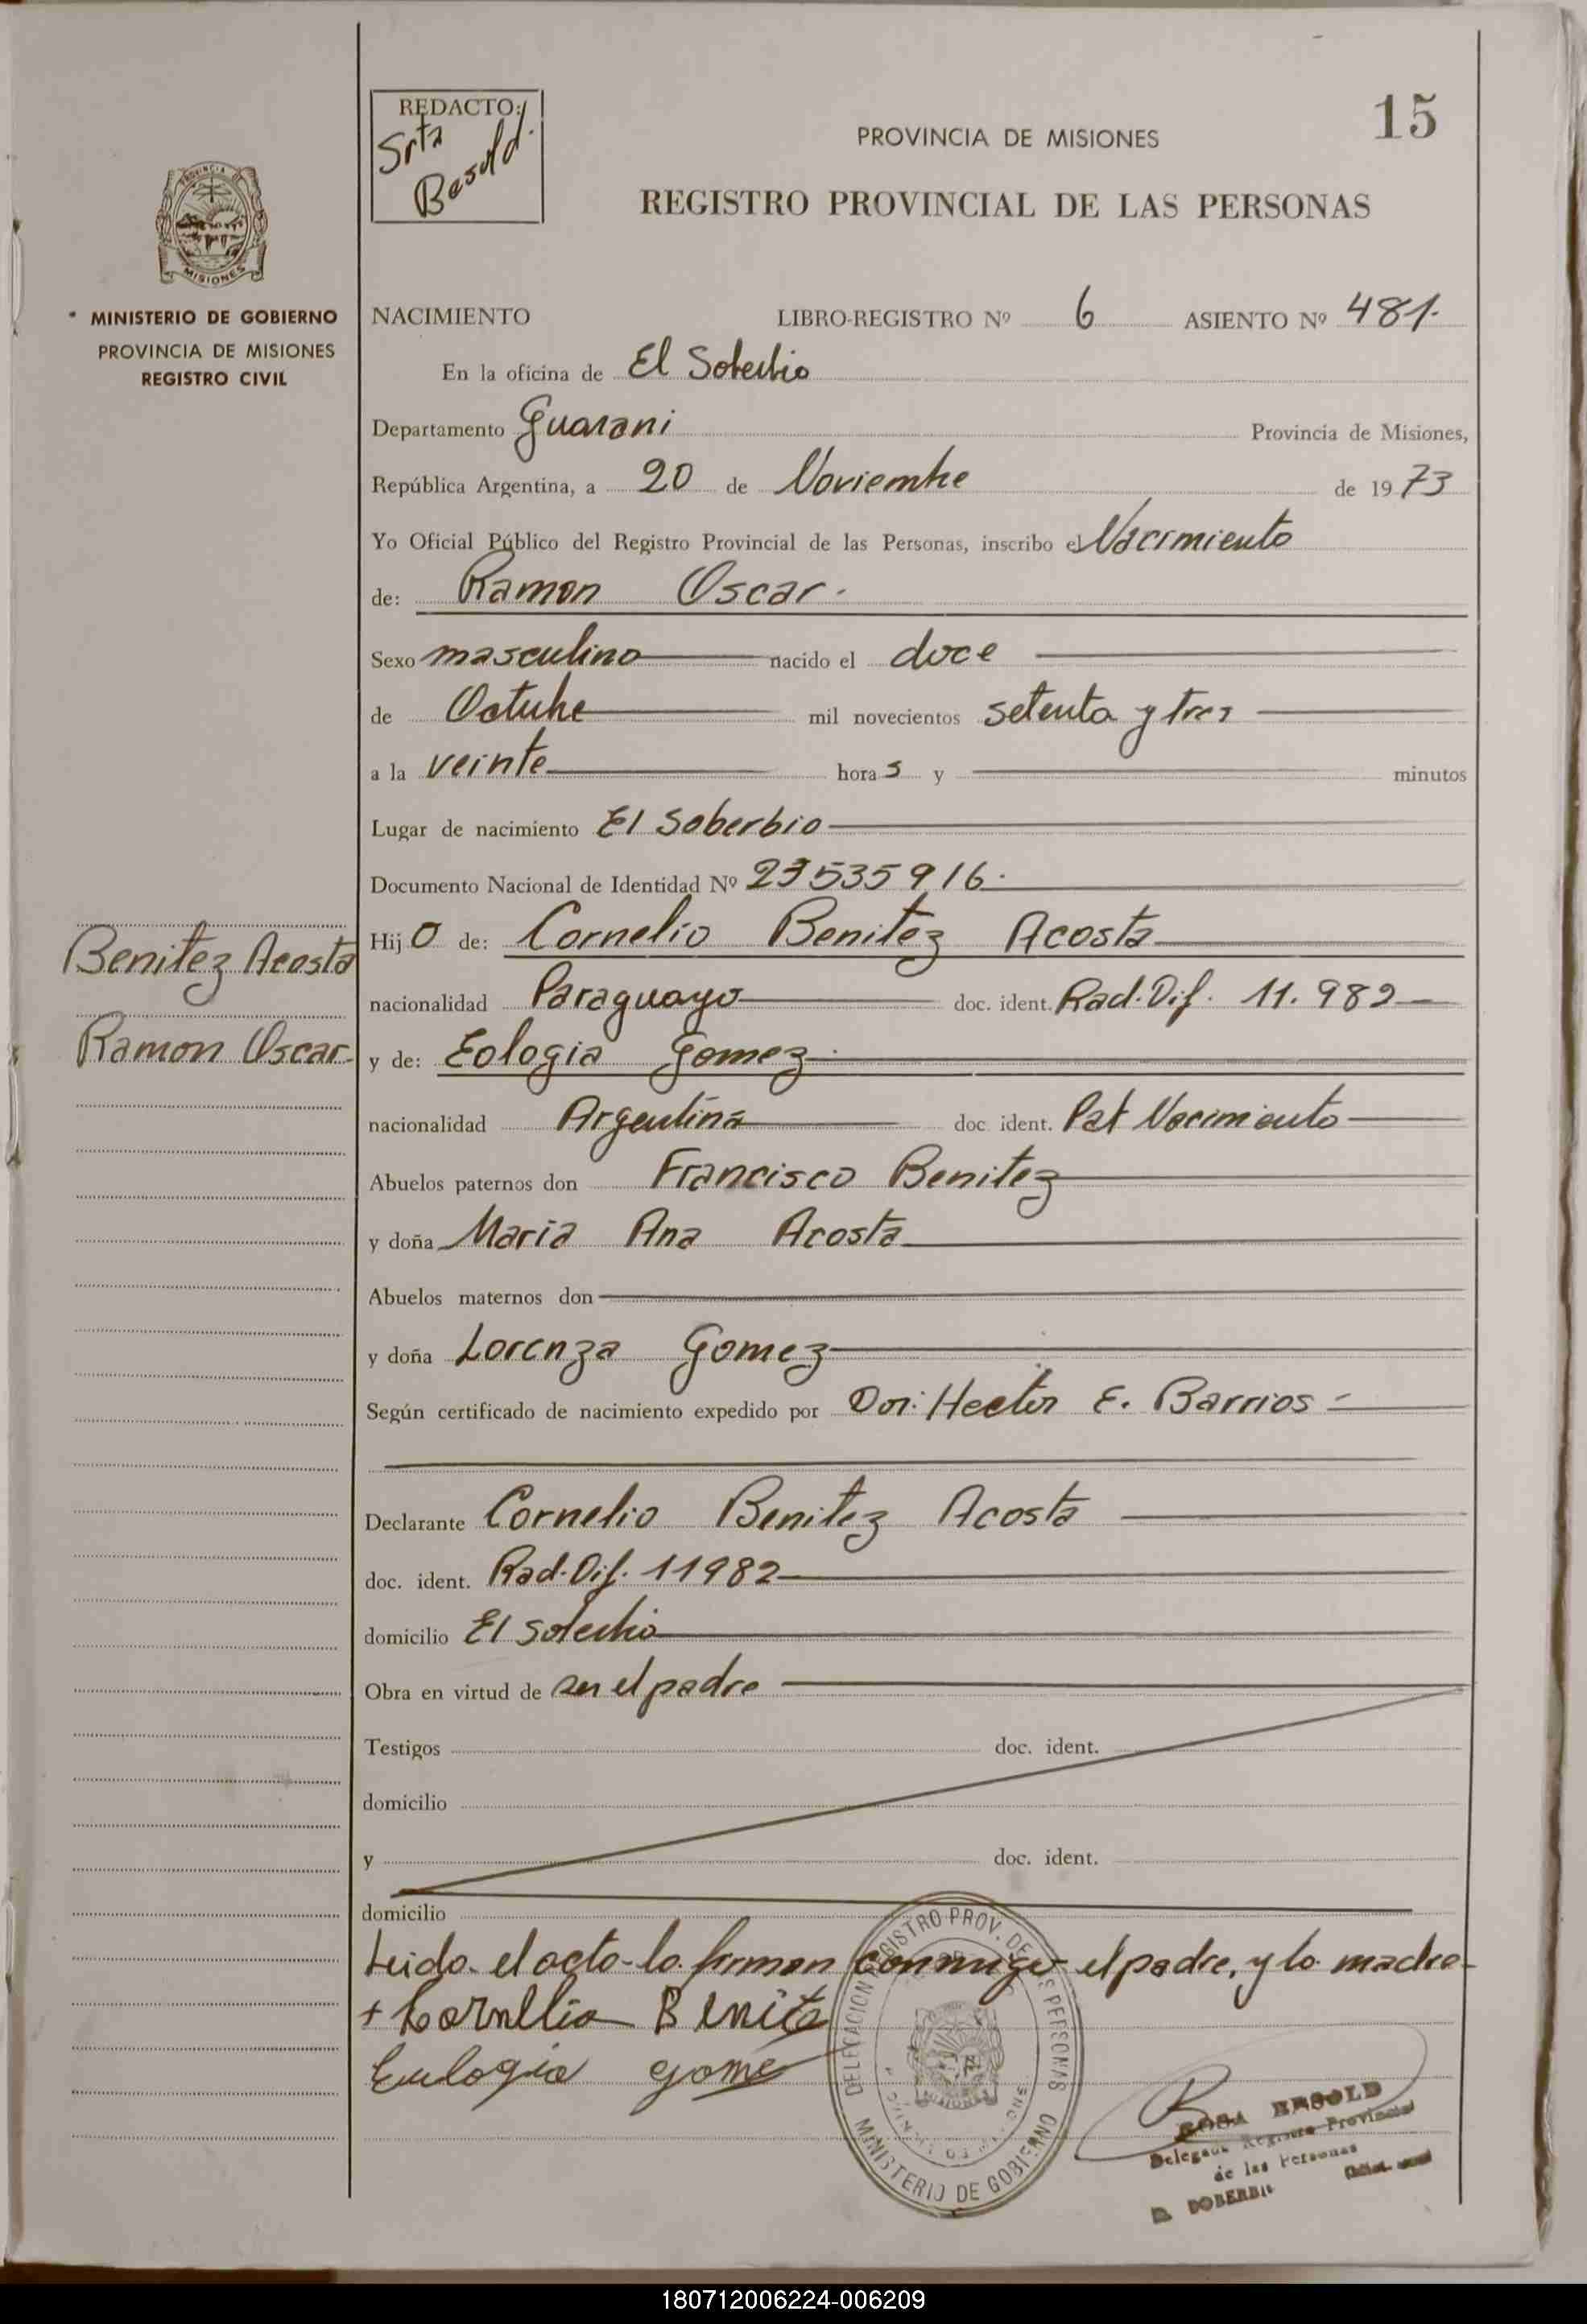 REDACTO:
Srta
Besold.
PROVINCIA DE MISIONES
15
REGISTRO PROVINCIAL DE LAS PERSONAS
PROVINCIA DE
MISIONES
MINISTERIO DE GOBIERNO
PROVINCIA DE MISIONES
REGISTRO CIVIL
NACIMIENTO LIBRO-REGISTRO Nº 6 ASIENTO Nº 481.
En la oficina de El Soberbio
Departamento Guarani Provincia de Misiones,
República Argentina, a 20 de Noviembre de 1973
Yo Oficial Público del Registro Provincial de las Personas, inscribo el Nacimiento
de: Ramon Oscar.
Sexo masculino nacido el doce
de Octubre mil novecientos setenta y tres
a la veinte horas y minutos
Lugar de nacimiento El Soberbio
Documento Nacional de Identidad Nº 23535916.
Benitez Acosta
Ramon Oscar
Hijo de: Cornelio Benitez Acosta
nacionalidad Paraguayo doc. ident. Rad. Dif. 11.982
y de: Eologia Gomez
nacionalidad Argentina doc. ident. Pat Nacimiento
Abuelos paternos don Francisco Benitez
y doña Maria Ana Acosta
Abuelos maternos don
y doña Lorenza Gomez
Según certificado de nacimiento expedido por Hector E. Barrios
Declarante Cornelio Benitez Acosta
doc. ident. Rad. Dif. 11982
domicilio El Soberbio
Obra en virtud de ser el padre
Testigos doc. ident.
domicilio
y doc. ident.
domicilio
Leida el acta la firman conmigo el padre, y la madre
+ Cornelio Benite
Eulogia gome
DELEGACION REGISTRO PROV. DE LAS PERSONAS
MINISTERIO DE GOBIERNO
ROSA BESOLD
Delegada Registro Provincial
de las Personas
EL SOBERBIO
180712006224-006209